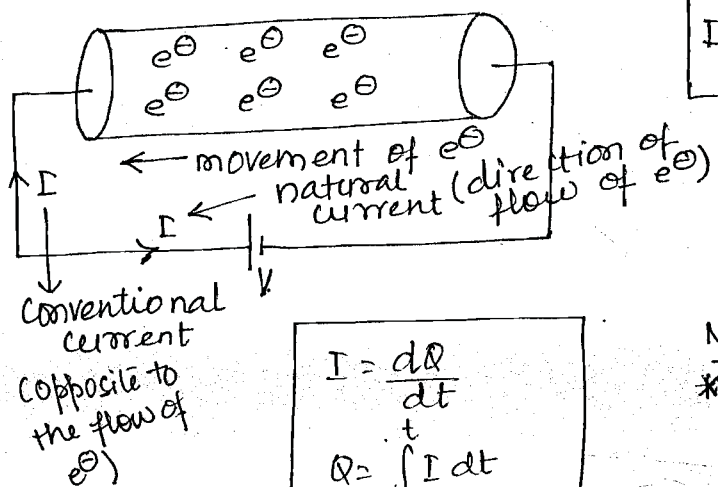 e⊖ e⊖ e⊖
e⊖ e⊖ e⊖
← movement of e⊖
I ← natural current (direction of flow of e⊖)
I
V
conventional
current
(opposite to
the flow of
e⊖)
I = dQ/dt
t
Q = ∫ I dt
I
N
*